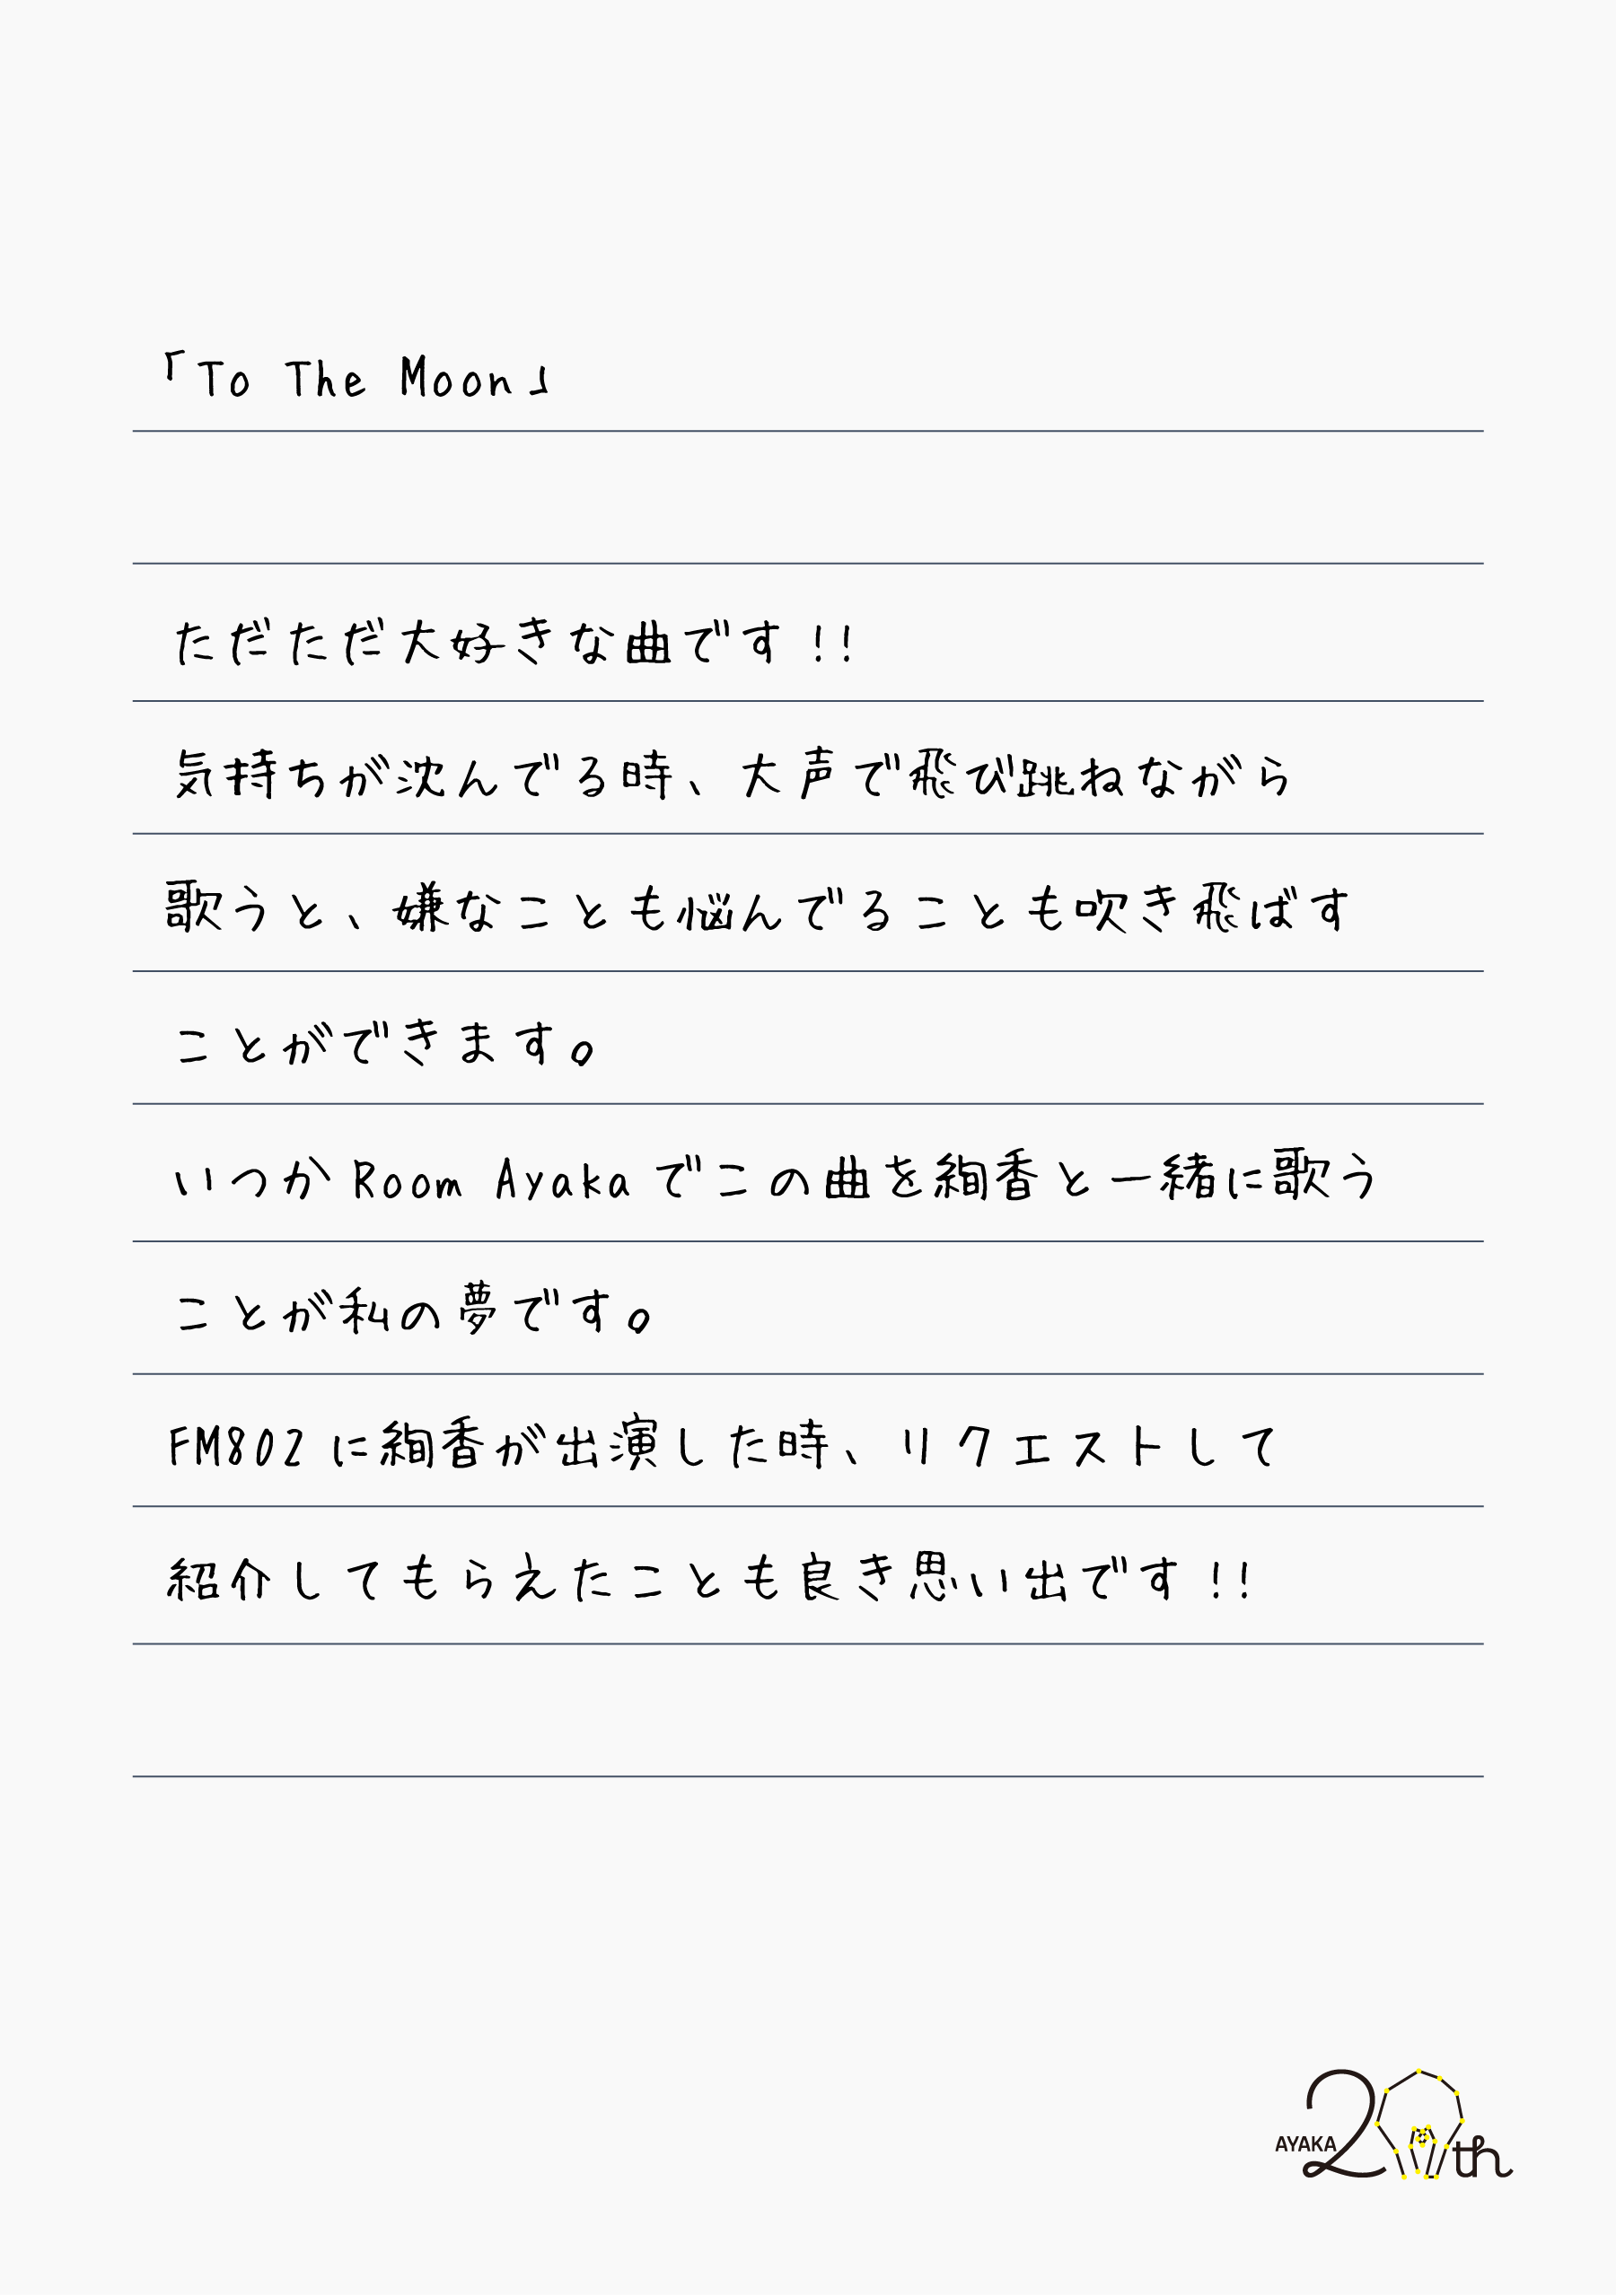 「To The Moon」
ただただ大好きな曲です!!
気持ちが沈んでる時、大声で飛び跳ねながら
歌うと、嫌なことも悩んでることも吹き飛ばす
ことができます。
いつか Room Ayaka でこの曲を絢香と一緒に歌う
ことが私の夢です。
FM802 に絢香が出演した時、リクエストして
紹介してもらえたことも良き思い出です!!
AYAKA 20th